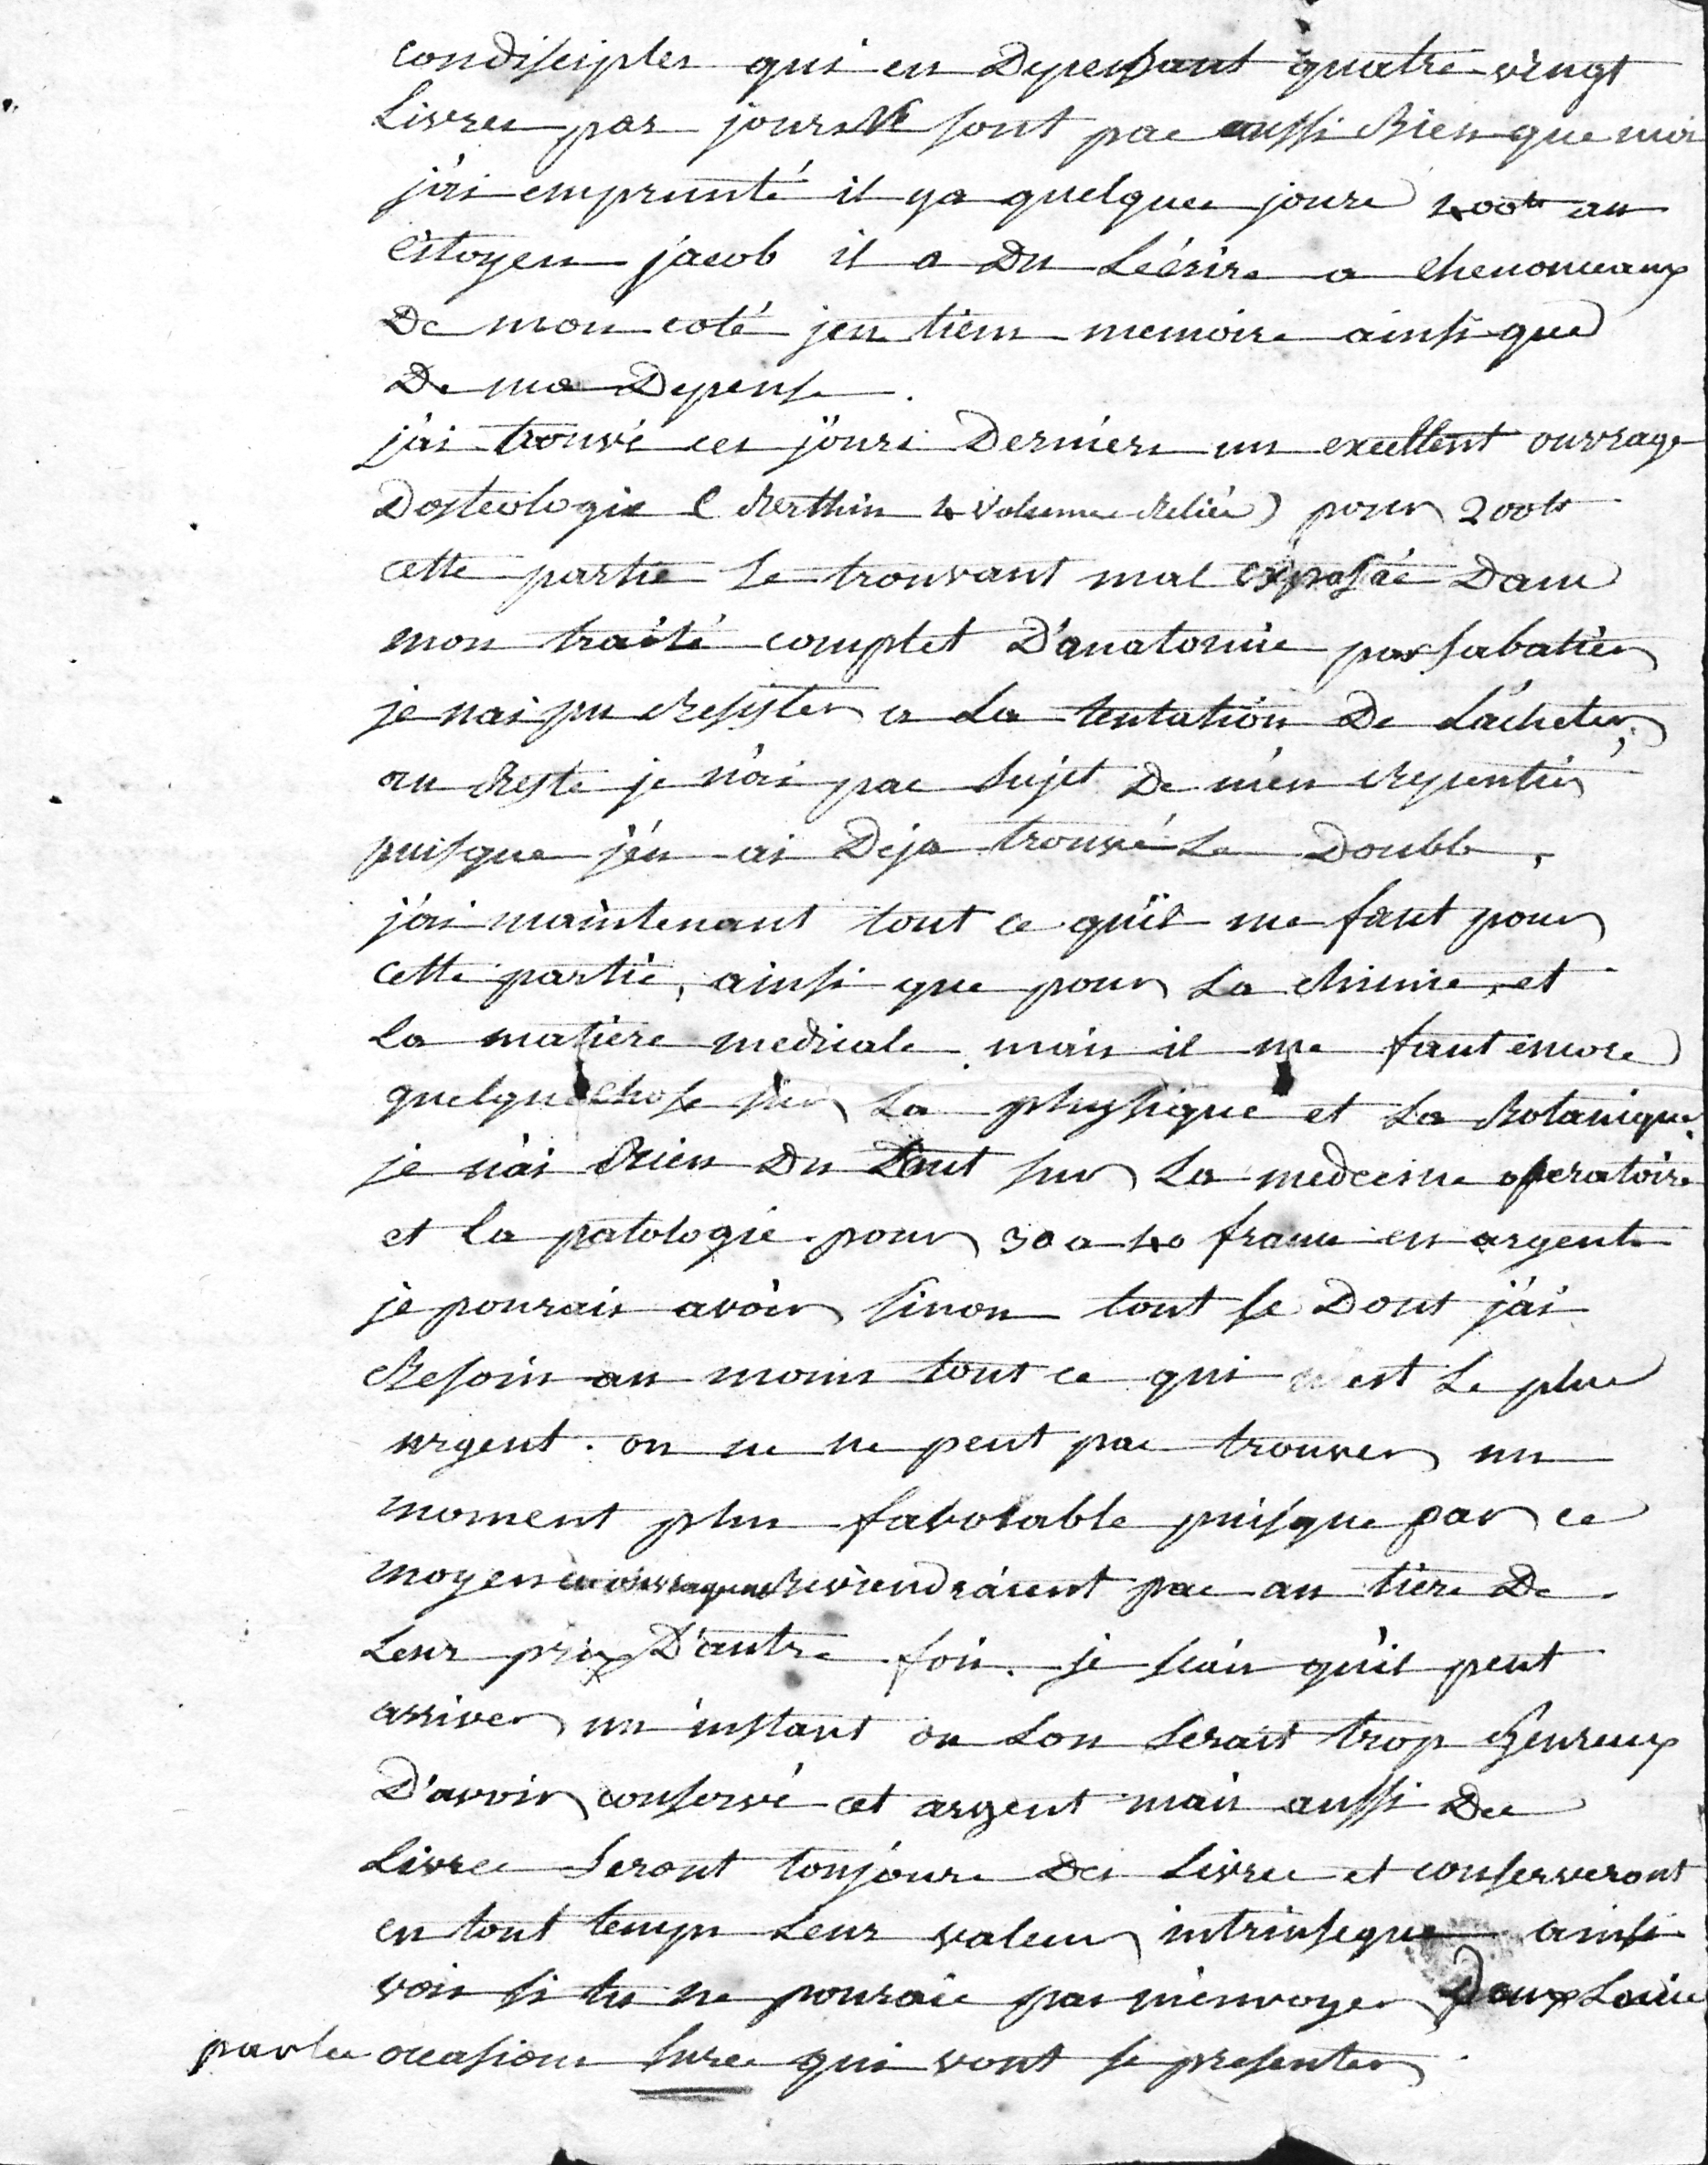 condisciples qui en Depensant quatre vingt
Livres par jour Ne sont pas aussi Bien que moi
j'ai emprunté il ya quelques jours 400tt au
Citoyen jacob il a Du L'écrire a chenonceaux
De mon coté jen tiens memoire ainsi que
De ma Depense.
j'ai trouvé ces jours Derniers un excellent ouvrage
Dosteologie ( Berthin 4 Volumes Reliés ) pour 200tt
cette partie Se trouvant mal exposée Dans
mon traité complet D'anatomie par sabatier
je nai pu Resister a La tentation De L'acheter,
au Reste je n'ai pas Sujet De m'en Repentir
puisque j'en ai Deja trouvé Le Double,
j'ai maintenant tout ce qu'il me faut pour
cette partie, ainsi que pour La chimie, et
La matiere medicale. mais il me faut encore
quelque chose sur La physique et La Botanique.
je n'ai Rien Du Tout sur La medecine operatoire
et La patologie. pour 30 a 40 francs en argent
je pourais avoir sinon tout se Dont j'ai
Besoin au moins tout ce qui est Le plus
urgent. on ne ne peut pas trouver un
moment plus favorable puisque par ce
moyen Reviendraient pas au tiers De
Leur prix D'autre fois. je scais qu'il peut
arriver un instant ou Lon Serait trop heureux
D'avoir conservé cet argent mais aussi Des
Livres Seront toujours Des Livres et conserveront
en tout temps Leur valeur intrinseque ainsi
vois si tu ne pourais pas m'envoyer Deux Louis
par les occasions sures qui vont se presenter.